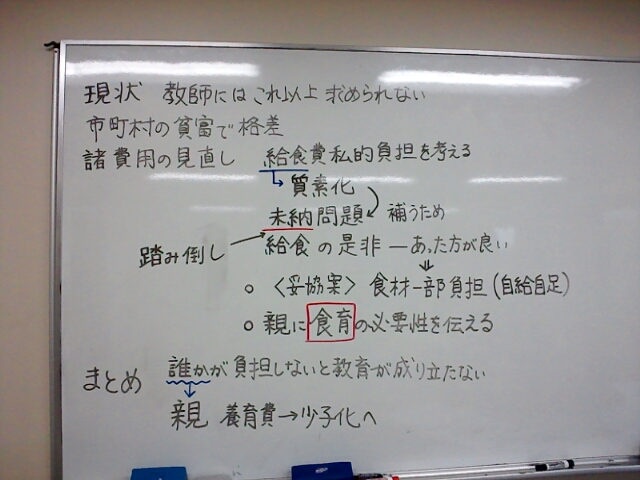 現状 教師にはこれ以上求められない
市町村の貧富で格差
諸費用の見直し 給食費私的負担を考える
↳質素化
未納問題 補うため
踏み倒し→給食の是非―あった方が良い
⇓
○〈妥協案〉食材一部負担(自給自足)
○親に食育の必要性を伝える
まとめ 誰かが負担しないと教育が成り立たない
↓
親 養育費→少子化へ